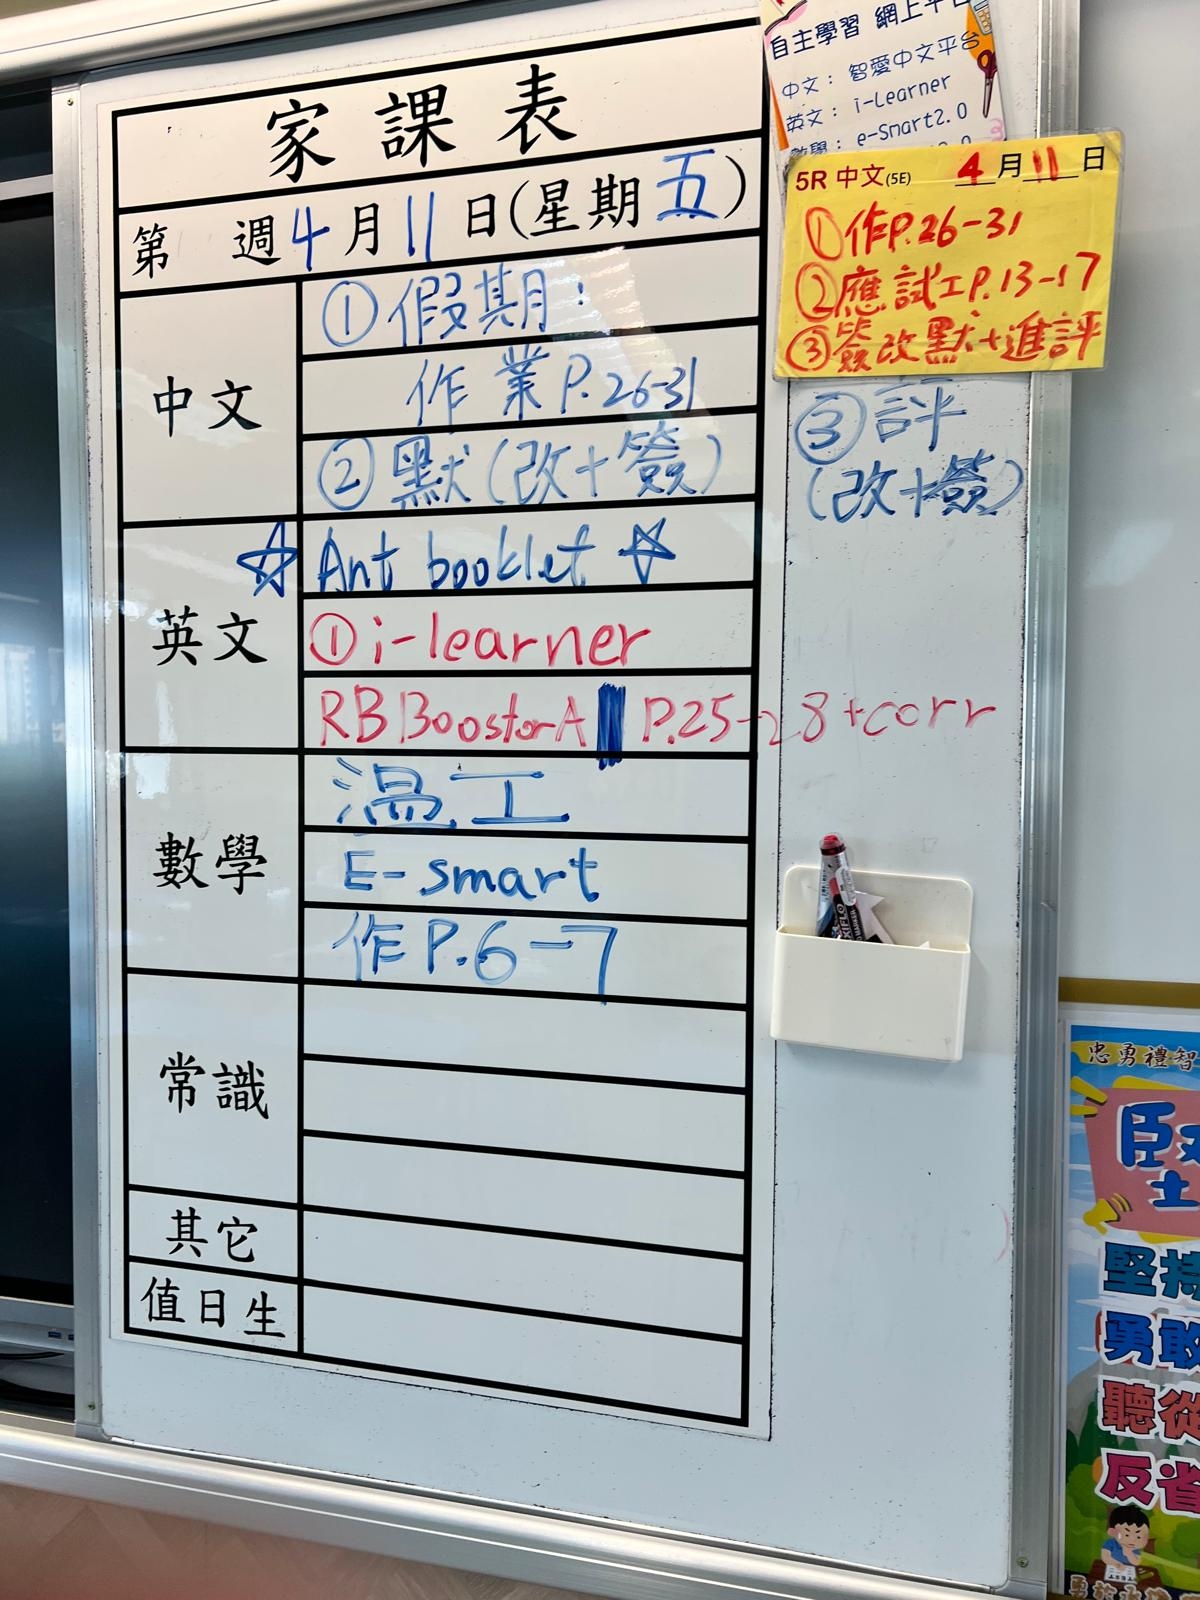 自主學習 網上平台
中文： 智愛中文平台
英文： i-Learner
數學： e-Smart2.0
5R 中文(5E) 4月11日
①作P.26-31
②應試工P.13-17
③簽改默+進評
家課表
第 週4月11日(星期五)
中文
①假期：
作業P.26-31
②默(改+簽)
③評
(改+簽)
英文
☆Ant booklet☆
①i-learner
RB BoostorA P.25-28+corr
數學
温工
E-smart
作P.6-7
常識
其它
值日生
忠勇禮智
堅持
勇敢
聽從
反省